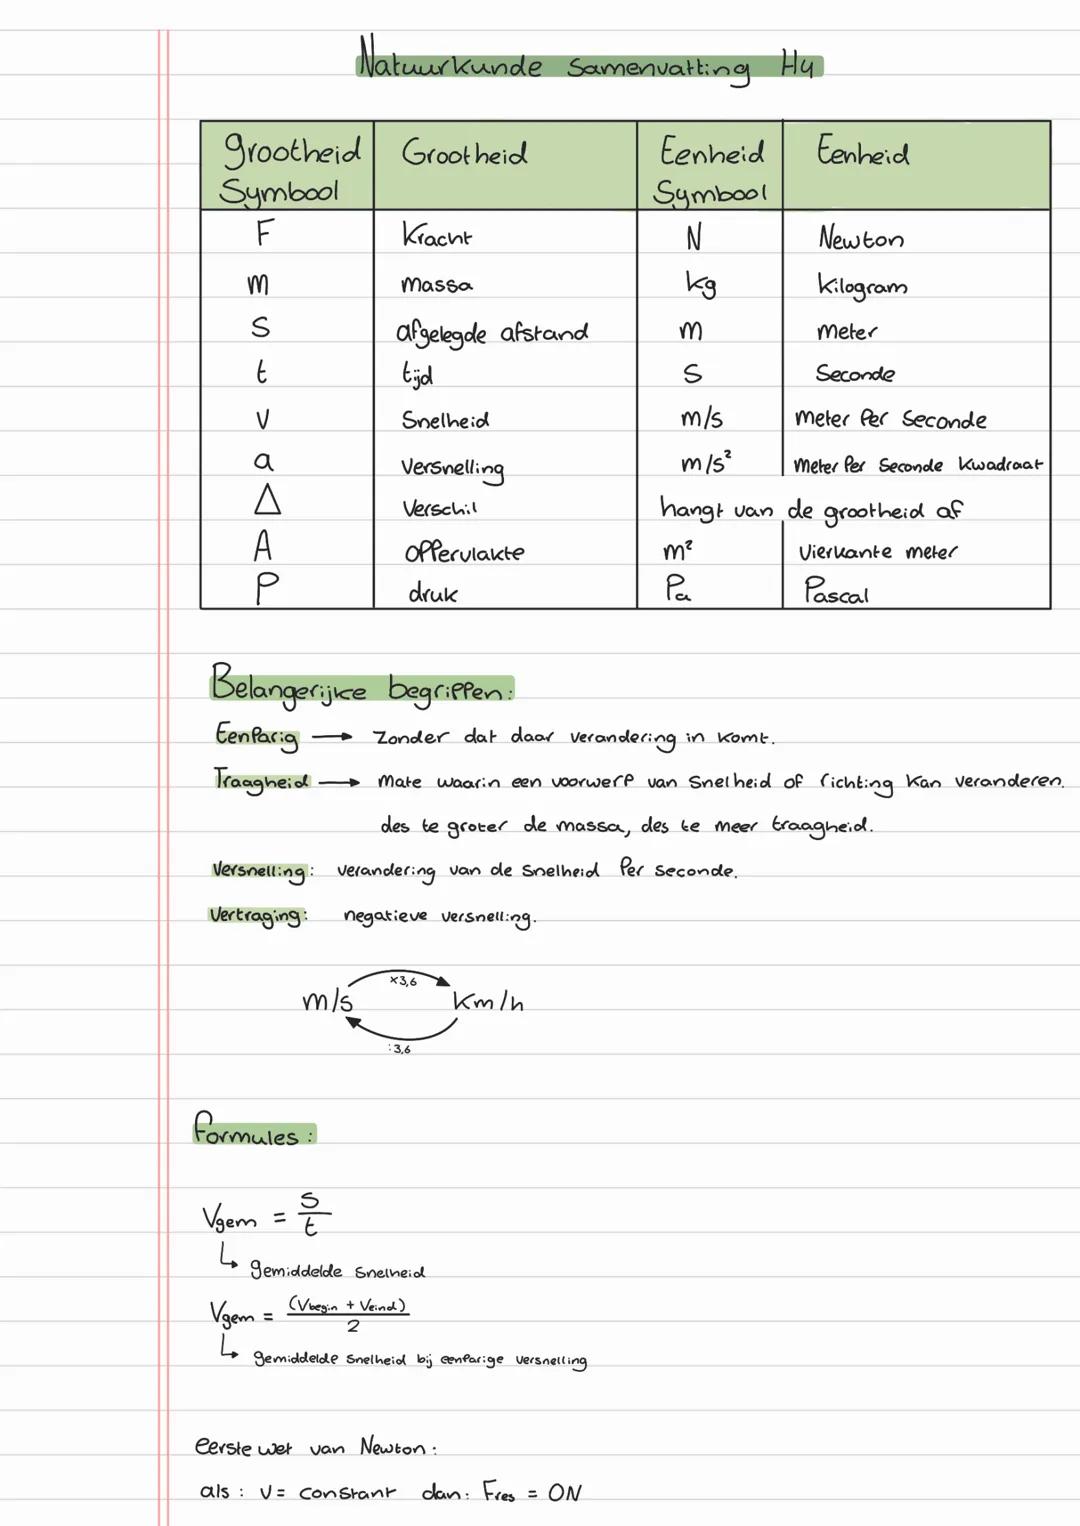 Natuurkunde samenvatting H4
grootheid Symbool | Grootheid | Eenheid Symbool | Eenheid
F | Kracht | N | Newton
m | massa | kg | kilogram
s | afgelegde afstand | m | meter
t | tijd | s | Seconde
v | Snelheid | m/s | meter per seconde
a | Versnelling | m/s² | meter per seconde kwadraat
Δ | Verschil | hangt van de grootheid af
A | oppervlakte | m² | vierkante meter
P | druk | Pa | Pascal
Belangerijke begrippen:
Eenparig → zonder dat daar verandering in komt.
Traagheid → Mate waarin een voorwerp van snelheid of richting kan veranderen.
des te groter de massa, des te meer traagheid.
Versnelling: verandering van de snelheid per seconde.
Vertraging: negatieve versnelling.
×3,6
m/s km/h
:3,6
formules:
Vgem = s/t
↳ gemiddelde snelheid
Vgem = (Vbegin + Veind)/2
↳ gemiddelde snelheid bij eenparige versnelling
eerste wet van Newton:
als: v = constant dan: Fres = 0N